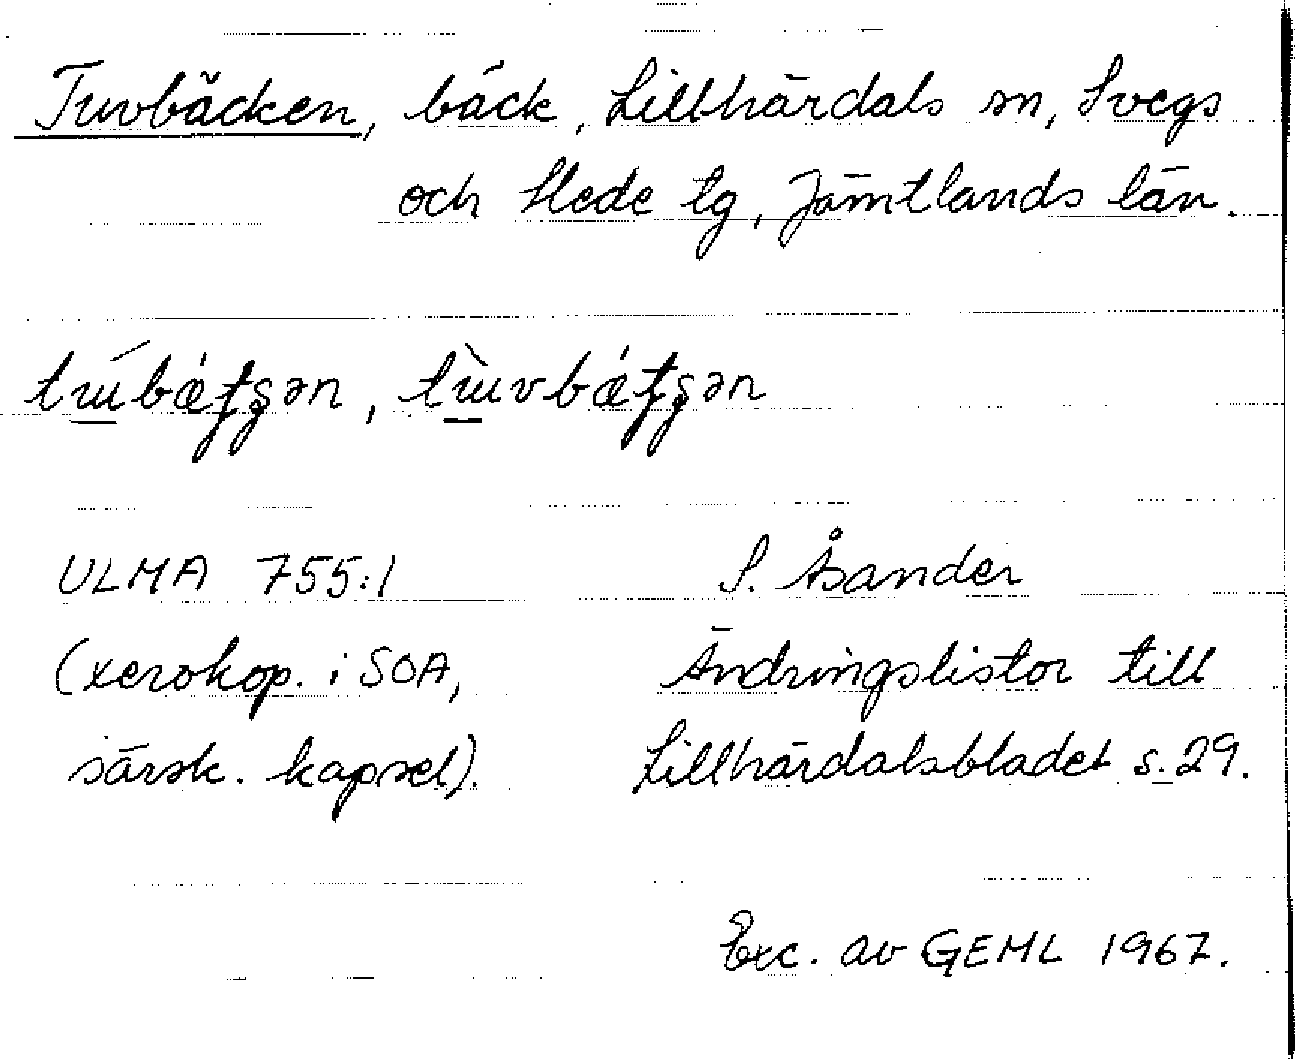 Tuvbäcken, bäck, Lillhärdals sn, Svegs
och Hede tg, Jämtlands län.
ULMA 755:1 S. Åsander
(xerokop. i SOA, Ändringslistor till
särsk. kapsel). Lillhärdalsbladet s. 29.
Exc. av GEML 1967.